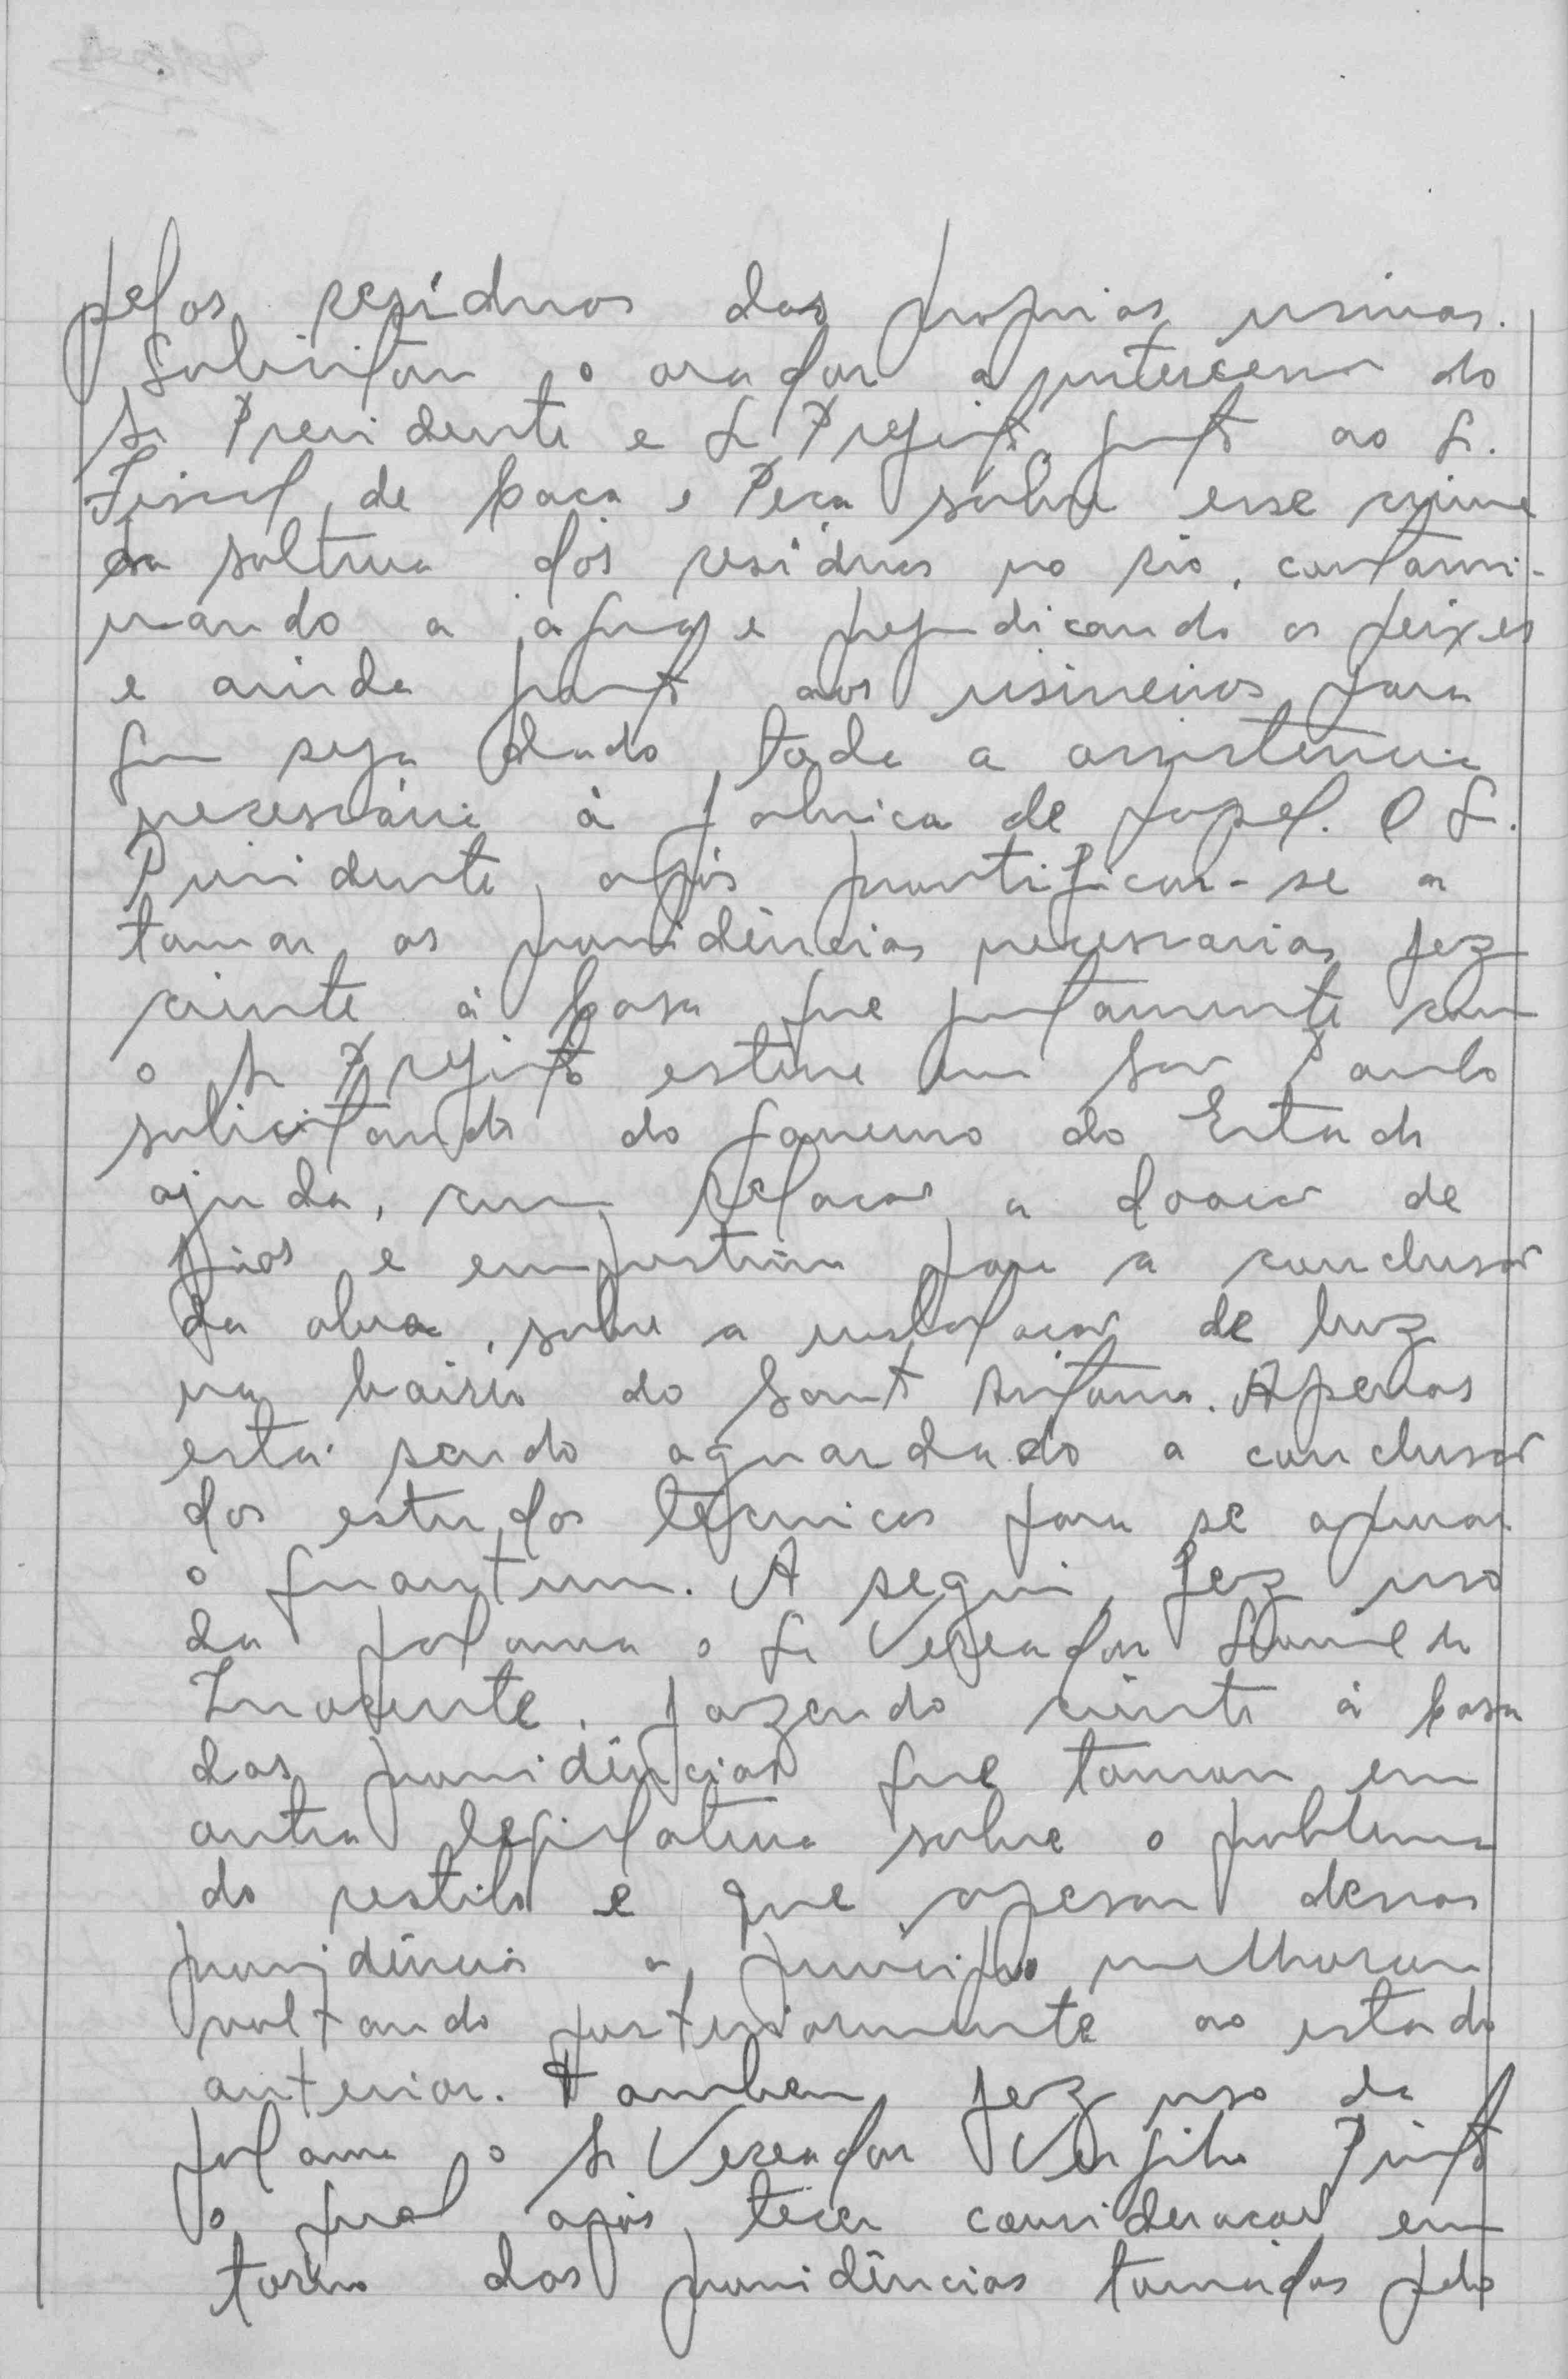 pelos resíduos das proprias usinas.
Solicitou o orador a intercessão do
Sr Presidente e Sr Prefeito junto ao Sr.
Fiscal de Caça e Pesca sobre esse crime
da soltura dos resíduos no rio, contami-
nando a agua e prejudicando os peixes
e ainda junto aos usineiros para
que seja dado toda a assistencia
necessária à fabrica de papel. O Sr.
Presidente, após prontificar-se a
tomar as providências necessarias fez
ciente à Casa que juntamente com
o Sr Prefeito esteve em São Paulo
solicitando do Governo do Estado
ajuda, com relação a doação de
fios e emprestimo para a conclusão
da obra, sobre a instalação de luz
no bairro do Santo Antonio. Apenas
está sendo aguardado a conclusão
dos estudos técnicos para se apurar
o quantum. A seguir, fez uso
da palavra o Sr Vereador
Inocente, fazendo ciente à Casa
das providências que tomou em
outra legislatura sobre o problema
do restilo e que apesar dessas
providências a principio melhorou
voltando posteriormente ao estado
anterior. Tambem fez uso da
palavra o Sr Vereador Virgilio Pinto
o qual após tecer consideração em
torno das providências tomadas pelo